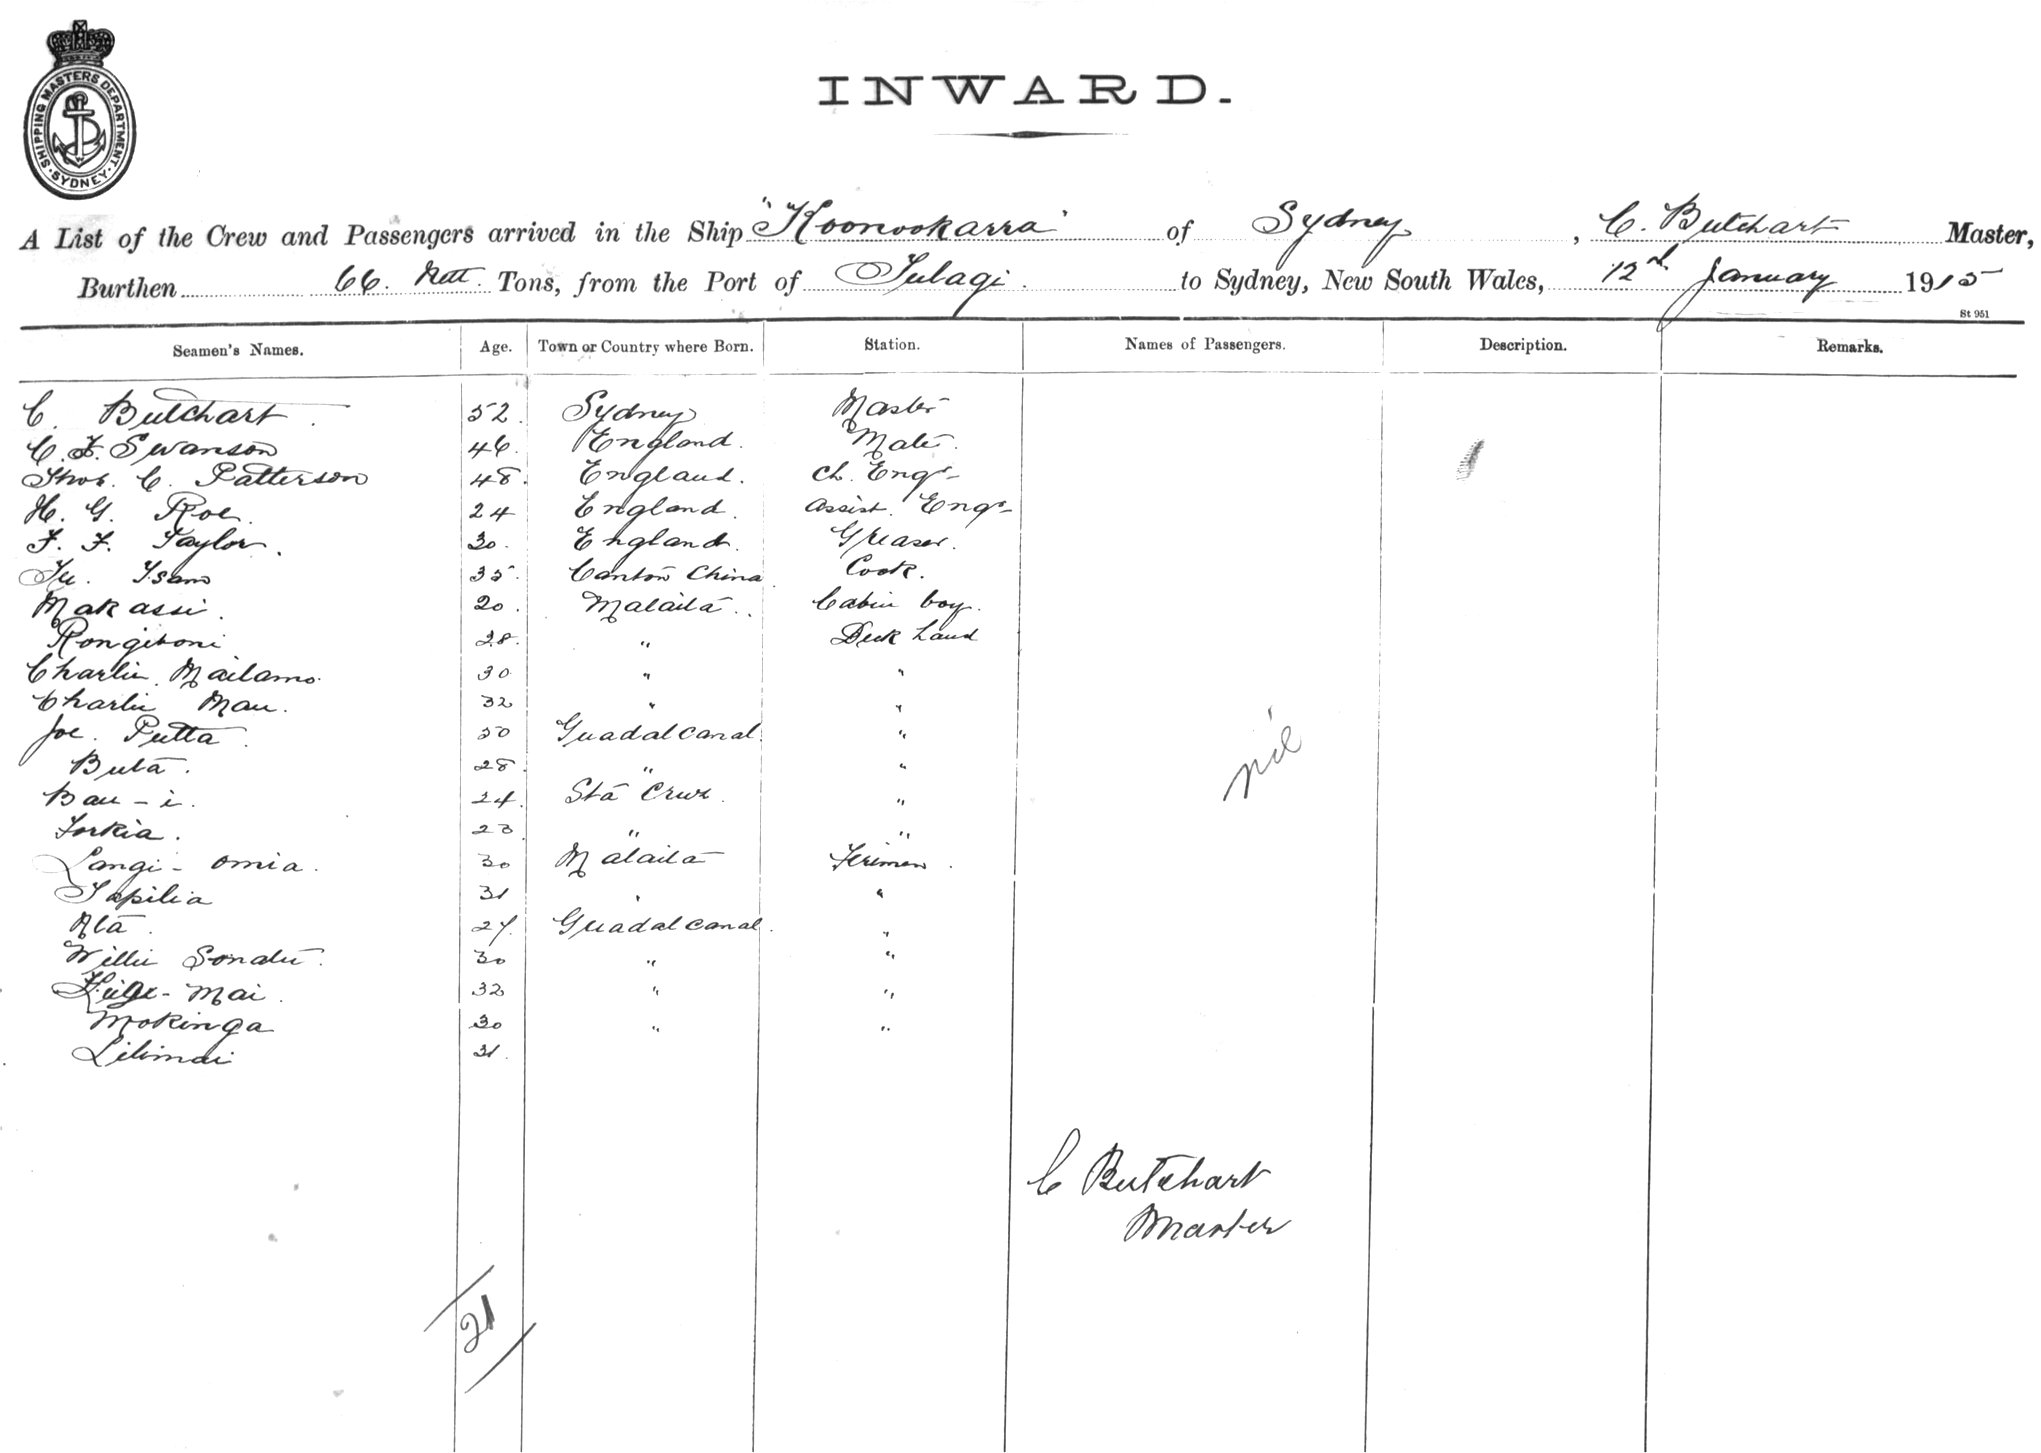 SHIPPING MASTERS DEPARTMENT
SYDNEY
INWARD.
A List of the Crew and Passengers arrived in the Ship "Koonookarra" of Sydney, C. Butchart Master,
Burthen 66. Nett. Tons, from the Port of Tulagi to Sydney, New South Wales, 12th January 1915
St 951
Seamen's Names. Age. Town or Country where Born. Station. Names of Passengers. Description. Remarks.
C. Butchart. 52. Sydney Master
C. F. Swanson 46. England. Mate.
Thos. C. Patterson 48. England. Ch. Engr
H. G. Roe. 24 England. Assist. Engr
F. F. Taylor. 30. England. Greaser.
35. Canton China Cook.
Makassi. 20. Malaita.. Cabin boy.
28. " Deck hand
Charlie Mailamo. 30 " "
Charlie Mau. 32 " "
Joe. Putta. 50 Guadalcanal. "
Buta. 28. " "
Bau-i. 24. Sta Cruz. "
Forkia. 23 " "
Langi-omia. 30 Malaita Firiman.
Tapilia 31 " "
Ata. 27. Guadalcanal. "
Willie 30 " "
32 " "
Mokinga 30 " "
Lilimai 31.
nil
C Butchart
Master
21